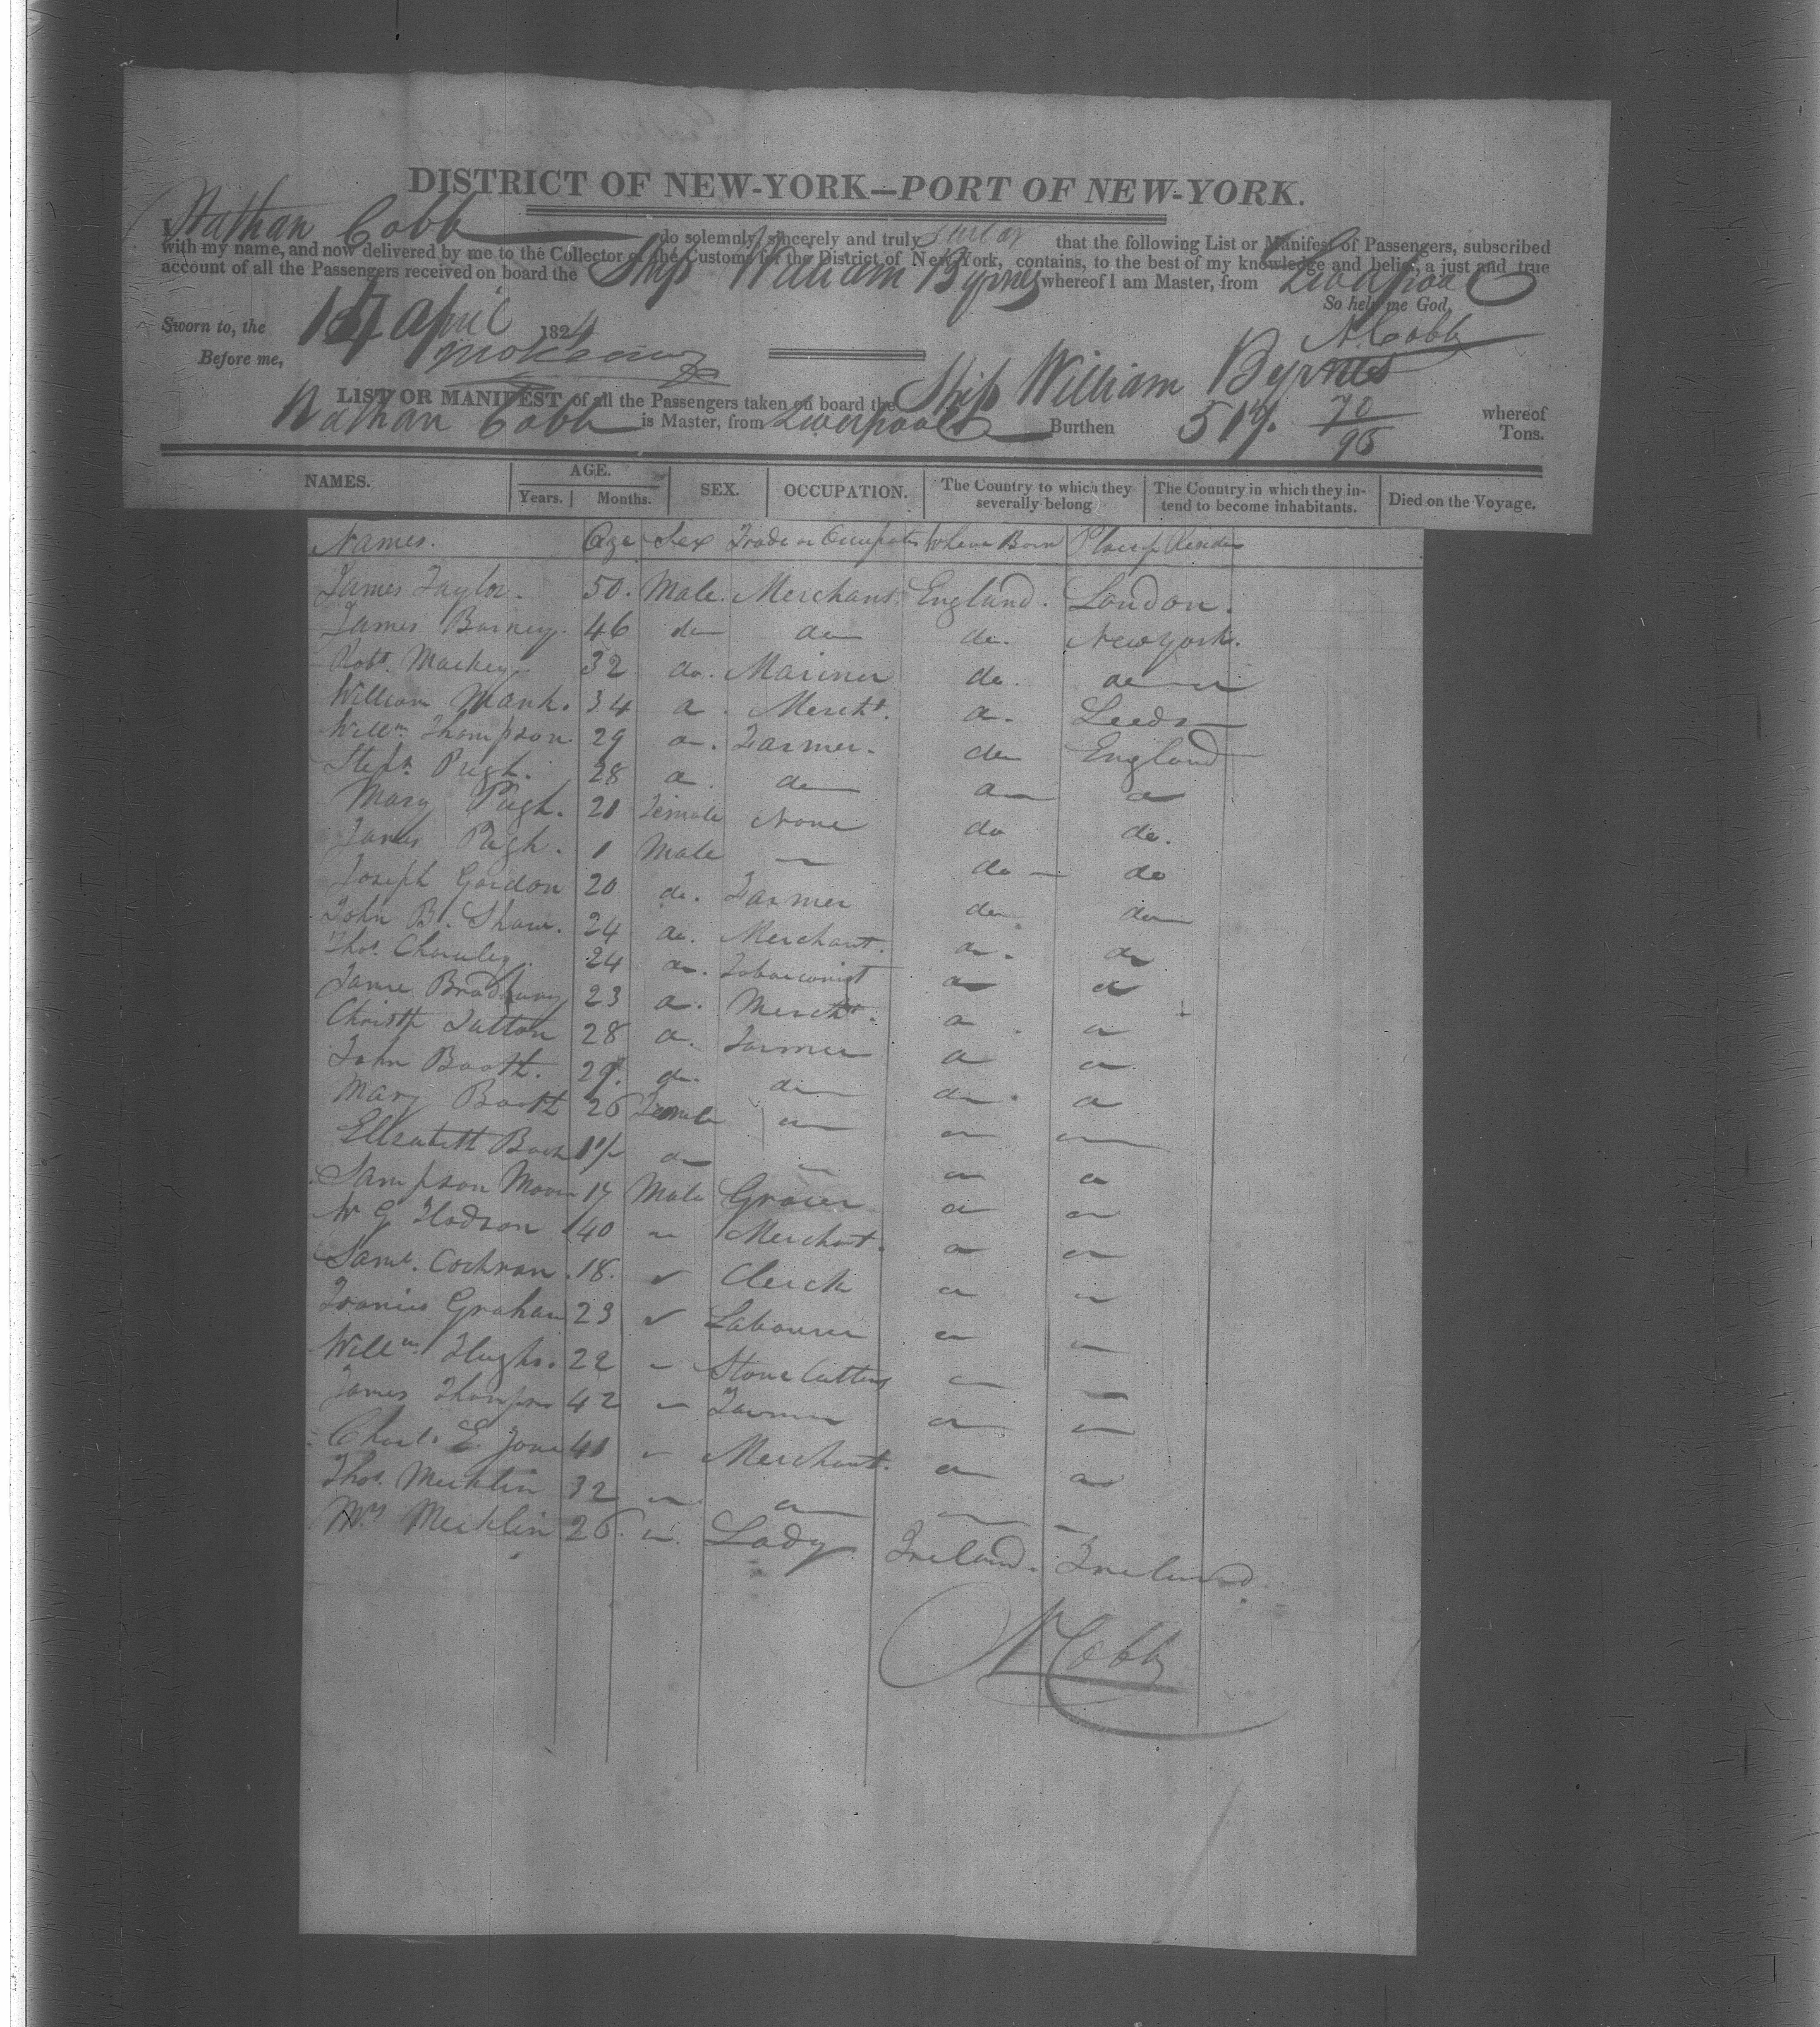 DISTRICT OF NEW-YORK—PORT OF NEW-YORK.
I, Nathan Cobb do solemnly, sincerely and truly swear that the following List or Manifest of Passengers, subscribed
with my name, and now delivered by me to the Collector of the Customs for the District of New-York, contains, to the best of my knowledge and belief, a just and true
account of all the Passengers received on board the Ship William Byrnes whereof I am Master, from Liverpool
So help me God,
Sworn to, the April 1824 N Cobb
Before me,
LIST OR MANIFEST of all the Passengers taken on board the Ship William Byrnes whereof
Nathan Cobb is Master, from Liverpool Burthen 517. 70/95 Tons.
NAMES. AGE. Years. Months. SEX. OCCUPATION. The Country to which they severally belong The Country in which they intend to become inhabitants. Died on the Voyage.
Names. Age Sex Trade or Occupation Where Born Place of Residen
James Taylor. 50. Male. Merchant. England. London.
James Barney. 46 do do do. New York.
Robt. Mackey. 32 do. Mariner do. do
William Mank. 34 do. Mercht. do. Leeds
Willm Thompson. 29 do. Farmer. do England
Stepn Pugh. 28 do do do do
Mary Pugh. 21 Female None do do.
James Pugh. 1 Male — do — do
Joseph Gordon 20 do. Farmer do do
John B. Shaw. 24 do. Merchant. do. do
Thos. Chorley. 24 do. Tobacconist do do
James Bradbury 23 do. Mercht. do do
Christr Tutton 28 do. Farmer do do
John Booth. 29. do do do. do
Mary Booth 26 Female do do do
Elizabeth Booth 1½ do — do do
Sampson Moor 17 Male Grocer do do
W G Hodson 40 do Merchant. do do
Saml. Cochran. 18. do Clerck do do
Francis Graham 23 do Labourer do do
Willm Hughs. 22 do Stone Cutter do do
James Thompson 42 do Farmer do do
Charls E. Jones 41 do Merchant. do do
Thos. Mecklin 32 do do do do
Mrs Mecklin 26. do. Lady Ireland. Ireland.
N Cobb